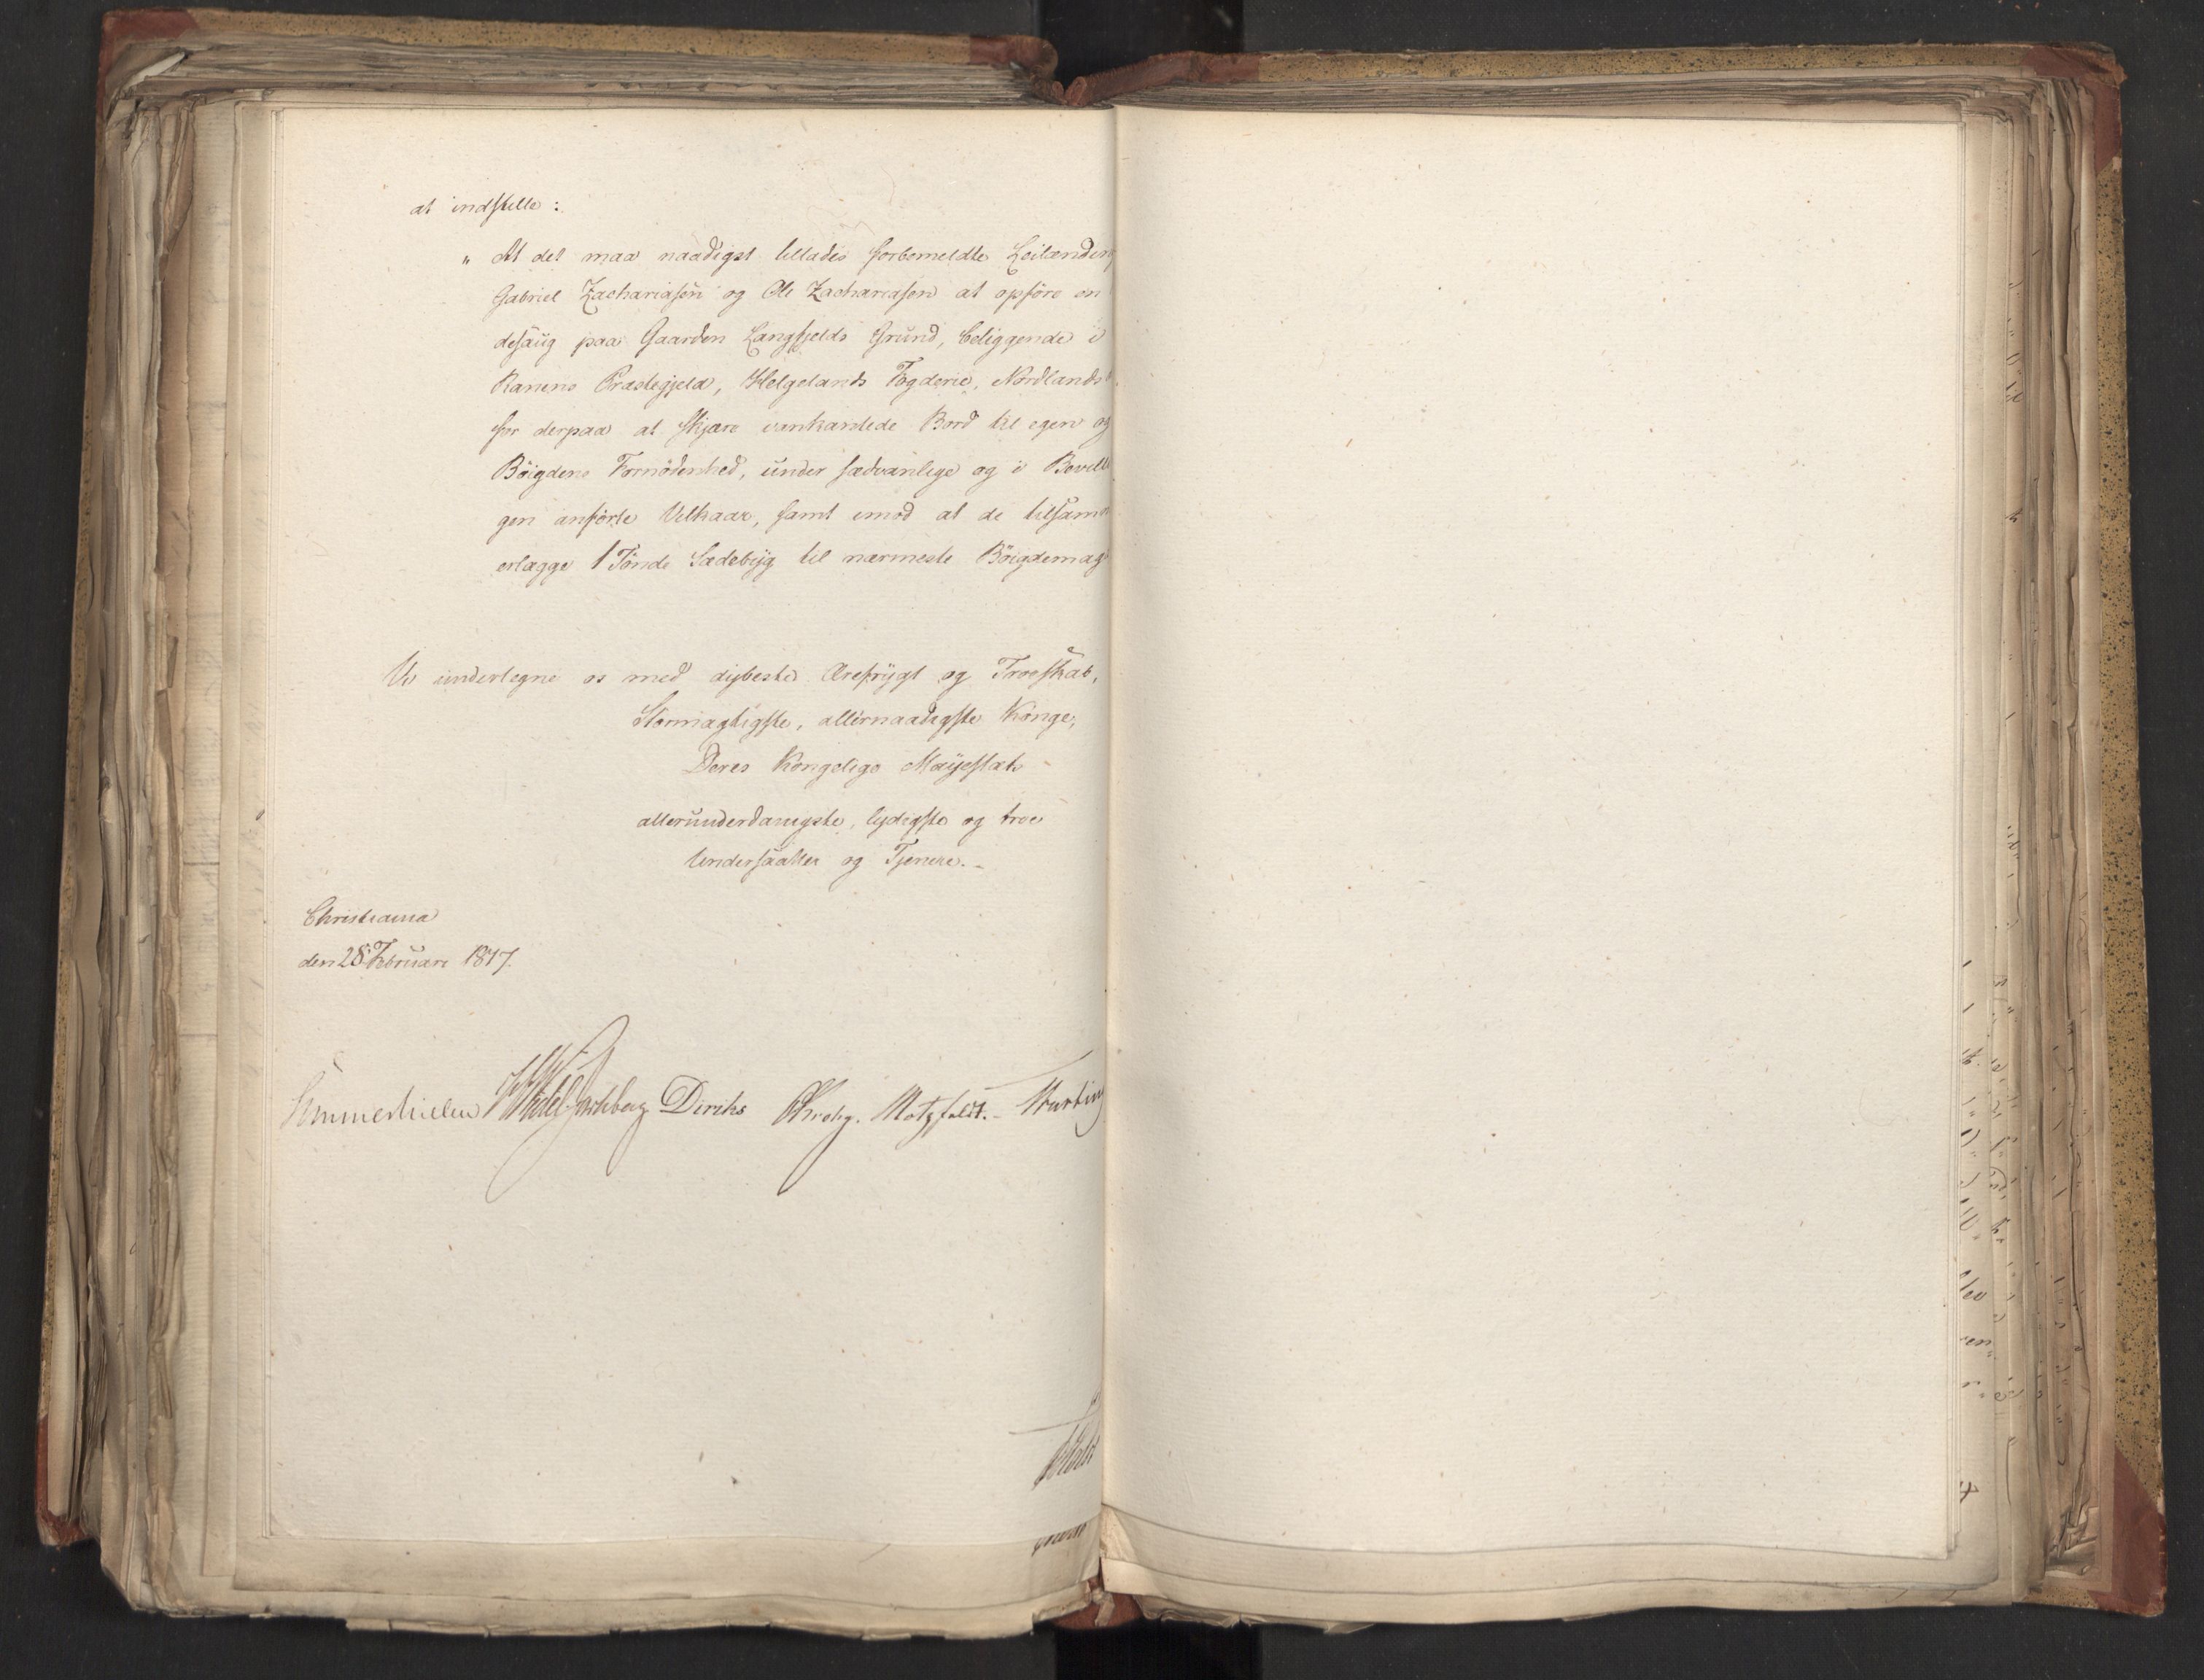 at indstille:
" At det maa naadigst tillades forbemeldte Leilænding
Gabriel Zachariasen og Ole Zachariasen at opføre en
desaug paa Gaarden Langfjelds Grund, beliggende i
Ranens Præstegjeld, Helgelands Fogderie, Nordlands
for derpaa at skjære vankantede Bord til egen og
Böigdens Fornödenhed, under sædvanlige og i Bevill
gen anförte Vilkaar, samt imod at de tilsamm
erlægge 1 Tönde Sædebyg til nærmeste Böigdemag
Vi undertegne os med dybeste Ærefrygt og Troeskab,
Stormægtigste, allernaadigste Konge,
Deres Kongelige Majestæts
allerunderdanigste, lydigste og troe
Undersaatter og Tjenere. -
Christiania
den 28 Februari 1817.
Sommerhielm Wedel Jarlsberg Diriks Krohg. Motzfeldt. -